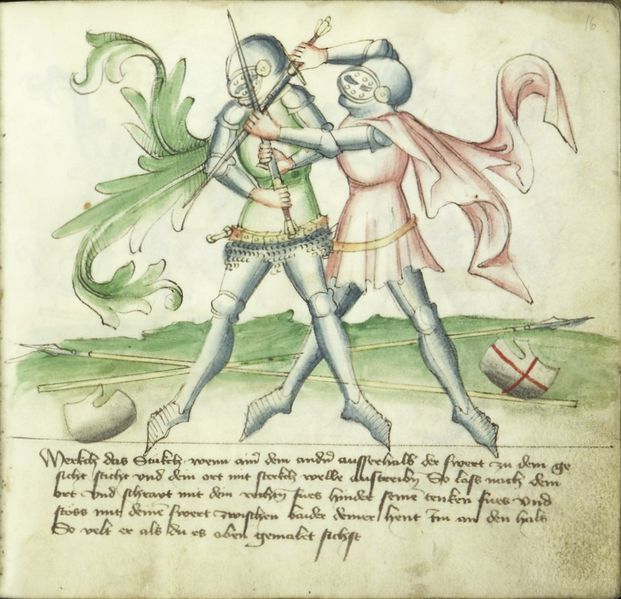 16
Merckh das Stuckh wenn ainer dem andern ausserhalb der swert zu dem ge
sicht sticht und dem ort mit sterckh welle austreiben So lass nach dem
ort und schreit mit dem rechten fues hinder seine tenken fues und
stoss mit deine swert zwischen baider deiner hent Im an den hals
So velt er als du es oben gemalet sichst